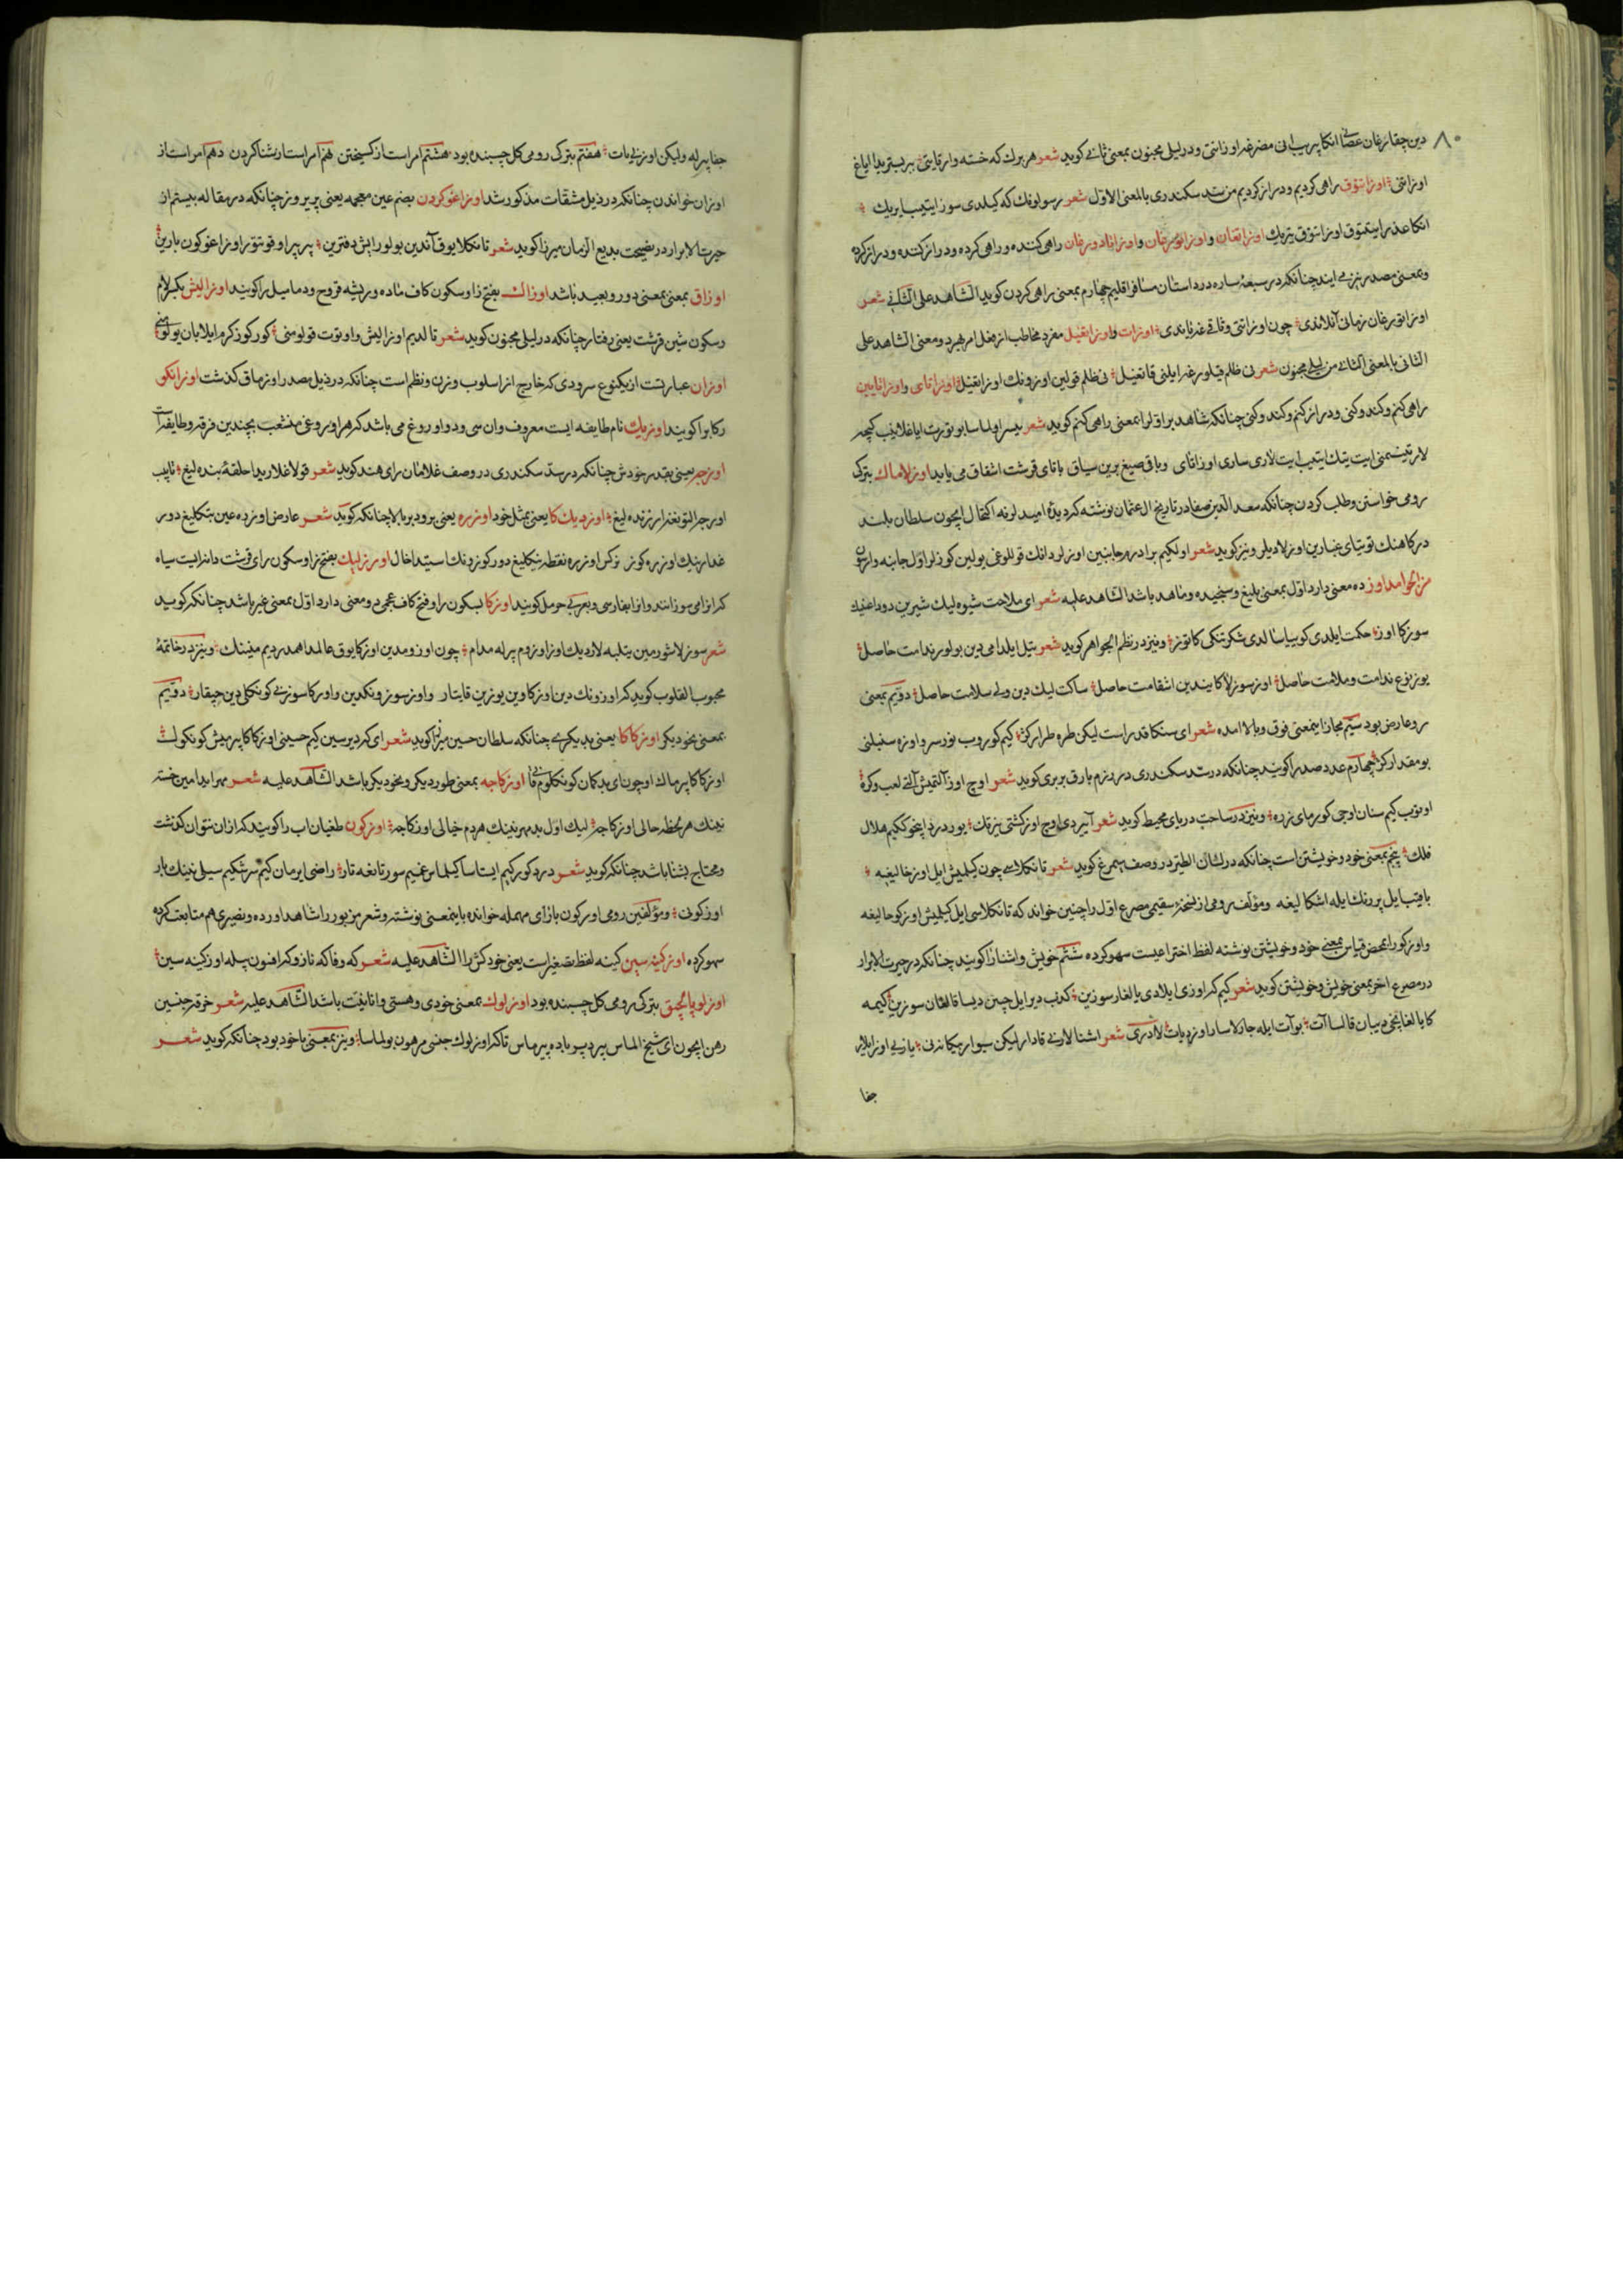 ۸۰
دین چقارغان عصانی انکا پر یسانی مضرغه اوزاتتی و در لیلی مجنون بمعنی ثانی کوید شعر هر برك كه خسته وار قایتی بر بستریدا ایاغ
اوزاتتی اوزاتتوق راهی کردیم و دراز کردیم من سد سکندری بالمعنی الاول شعر رسولونك كه كیلدی سوز ایتیب یریك
انکا عذر ایتمتوق اوزاتتوق یریك اوزاتقان و اوزاتورغان و اوزاتادورغان راهی کننده و راهی کرده و دراز کننده و دراز کرده
و بمعنی مصدر نیز می آید چنانکه در سبعۀ سیاره در داستان مسافر اقلیم چهارم بمعنی راهی کردن کوید الشاهد علی الثانی شعر
اوزاتورغان زمانی آنلاندی چون اوزاتتی وثاقی غه یاندی اوزات و اوزاتغیل مفرد مخاطب از فعل امر بهر دو معنی الشاهد علی
الثانی بالمعنی الثانی من لیلی مجنون شعر نی ظلم قیلور غه ایلنی قاتغیل نی ظلم قولین اوزونك اوزاتغیل اوزاتای و اوزاتایین
راهی کنم و کند و کنی و دراز کنم و کند و کنی چنانکه شاهد بر اول را بمعنی راهی کنم کوید شعر بیسر اولماسا بو تورت ایاغلانیب کیچه
لار تیتسمنی ایت یتك ایتیب ایت لاری ساری اوزاتای و باقی صیغ برین سیاق باتای قرشت اشتقاق می یابد اوزلاماك بترک
رومی خواستن و طلب کردن چنانکه سعد الدین صفا در تاریخ ال عثمان نوشته که دیدۀ امید لرنه اکتحال ایچون سلطان بلند
درکاهنك توتیای غبارین اوزلادیلر و نیز کوید شعر اولکیم برادر در جانبین اوزلر دانك قوللوغی یولین کوزلر اول جانبه وارسن
من الجوامد اوز ده معنی دارد اول بمعنی بلیغ و سنجیده و ماهد باشد الشاهد علیه شعر ای ملاحت شیوه لیك شیرین دوداغینك
سوزکا اوز حکمت ایلدی کویسا سالدی شکر تنکی کا توز و نیز در نظم الجواهر کوید شعر تیل ایلدامی دین بولور ندامت حاصل
یوز نوع ندامت و ملامت حاصل اوز سوزلاکا یندین اشقامت حاصل ساکت لیك دین ولی سلامت حاصل دویم بمعنی
رو عارض بود سیم مجازا بمعنی فوق و بالا امده شعر ای سنکا قدر است لیکن طره طرار کژ کیم کوروب نورسر و اوزه سنبلنی
بو مقدار کژ چهارم عدد صد را کویند چنانکه در سد سکندری در رزم بارق بربری کوید شعر اوج اوز آلتمیش آلتی لعب و کرۀ
اونوب کیم سنان اوجی کورمای زره و نیز در ساحت دریای محیط کوید شعر آیردی اوچ اوز کشتی تیزتك یورردا یغو ککیم هلال
فلك پنجم بمعنی خود و خویشتن است چنانکه در لسان الطیر در وصف سیمرغ کوید شعر تانکلاسی چون کیلمیش ایل اوز خالیغه
باقیب ایل پر رنك ایله اشكا لیغه و مؤلف رومی از نسخۀ سقیمی مصرع اول را چنین خواند که تانکلاسی ایل کیلمیش اوزکو حالیغه
و اوزکو را بمحض قیاس بمعنی خود و خویشتن نوشته لفظ اختراعیست سهو کرده ششم خویش و اشنا را کویند چنانکه در حیرت الابرار
در مصرع اخر بمعنی خویش و خویشتن کوید شعر کیم که اوزی ایلادی یالغان سوزین کذب دیر ایل چین دیسا قالغان سوزین کیمه
کا یالغانی بیان قالسا آت بو آت ایله جارلاسا را وزدیات لادری شعر اشنا لارنی قادار لیکن سیوار بیکانه نی یازنی اوز ایلار
جفا
جفا پرله ولیکن اوزنی یات هفتم بترک رومی کل چسبنده بود هشتم امر است از کسیختن نهم امر است از شنا کردن دهم امر است از
اوزان خواندن چنانکه در ذیل مشتقات مذکور شد اوزاغو کردن بضم عین معجمه یعنی پریروز چنانکه در مقاله بیستم از
حیرت الابرار در نصیحت بدیع الزمان میرزا کوید شعر تانکلا یوق آندین بولور ایش دفترین پر پر اوقوتتور اوزاغو کون بارین
اوزاق بمعنی بمعنی دور و بعید باشد اوزاك بفتح زا و سکون کاف ماده و ریشه قروح و دمامیل را کویند اوزالیش بکسر لام
و سکون شین قرشت یعنی رفتار چنانکه در لیلی مجنون کوید شعر تالدیم اوزالیش و اوتوت قولومنی کور کوز کرم ایلابان یولومنی
اوزان عبارتست از یکنوع سرودی که خارج از اسلوب وزن و نظم است چنانکه در ذیل مصدر اوزماق کذشت اوزانکو
رکاب را کویند اوزبك نام طایفه ایست معروف و ان سی و دو اوروغ می باشد که هر اوروغی منشعب بچندین فرقه و طایفه است
اوزجه یعنی بقدر خودش چنانکه در سد سکندری در وصف غلامان رای هند کوید شعر قولاغلاریدا حلقۀ بنده لیغ تاپیب
اورجه التونغه ارزنده لیغ اوزدیك کا یعنی بمثل خود اوزره یعنی برو و بر بالا چنانکه کوید شعر عارض اوزره عین بتکلیغ دور
غدارینك اوزره کوز نوکس اوزره نقطه ینکلیغ دور کوزونك استیدا خال اوزرلیك بفتح زا و سکون رای قرشت دانه ایست سیاه
که انرا می سوزانند و انرا بفارسی و بعربی حرمل کویند اوزکا بسکون را و فتح کاف عجمی دو معنی دارد اول بمعنی غیر باشد چنانکه کوید
شعر سوزلاشورمین یتلبه لاردیك اوز اوزوم پرله مدام چون اوزومدین اوزکا یوق عالمدا همدردیم مینینك و نیز در خاتمۀ
محبوب القلوب کوید که اوزونك دین اوزکا وین یوزین قایتار و اوز سوزونکدین و اوزکا سوزنی کونکلی دین چیقار دویم
بمعنی بخود دیکر اوزکاکا یعنی بدیکری چنانکه سلطان حسین میرزا کوید شعر ای که دیرسین کیم حسینی اوزکاکا پرمیش کونکولنی
اوزکاکا پرماك اوچون ای بدکمان کونکلوم قانی اوزکاجه بمعنی طور دیکر و بخود دیکر باشد الشاهد علیه شعر مهر ایدا مین خسته
نینك هر لحظه حالی اوزکاجه لیك اول بدمهر نینك هردم خیالی اوزکاجه اوزکون طغیان اب را کویند که از ان نتوان کذشت
و محتاج بشنا باشد چنانکه کوید شعر درد کورکیم ایتاسا کیلماس غمیم سورتانغه تار راضی ایرمان کیم سرشکیم سیلی نینك بار
اوزکونی و مؤلفین رومی اورکون بازای مهمله خوانده باینمعنی نوشته و شعر مزبور را شاهد اورده و نصیری هم متابعت کرده
سهو کرده اوزکینه سین کینه لفظ تصغیر است یعنی خودکش را الشاهد علیه شعر که وفا که ناز و که افنون پله اوزکینه سین
اوزلو پالچیق بترکی رومی کل چسبنده بود اوزلوك بمعنی خودی و هستی و انانیت باشد الشاهد علیه شعر خرقه جنسین
رهن ایچون ای شیخ الماس پیر دیر باده پیرماس تا که اوزلوك جنسی مرهون بولماسا و نیز بمعنی با خود بود چنانکه کوید شعر